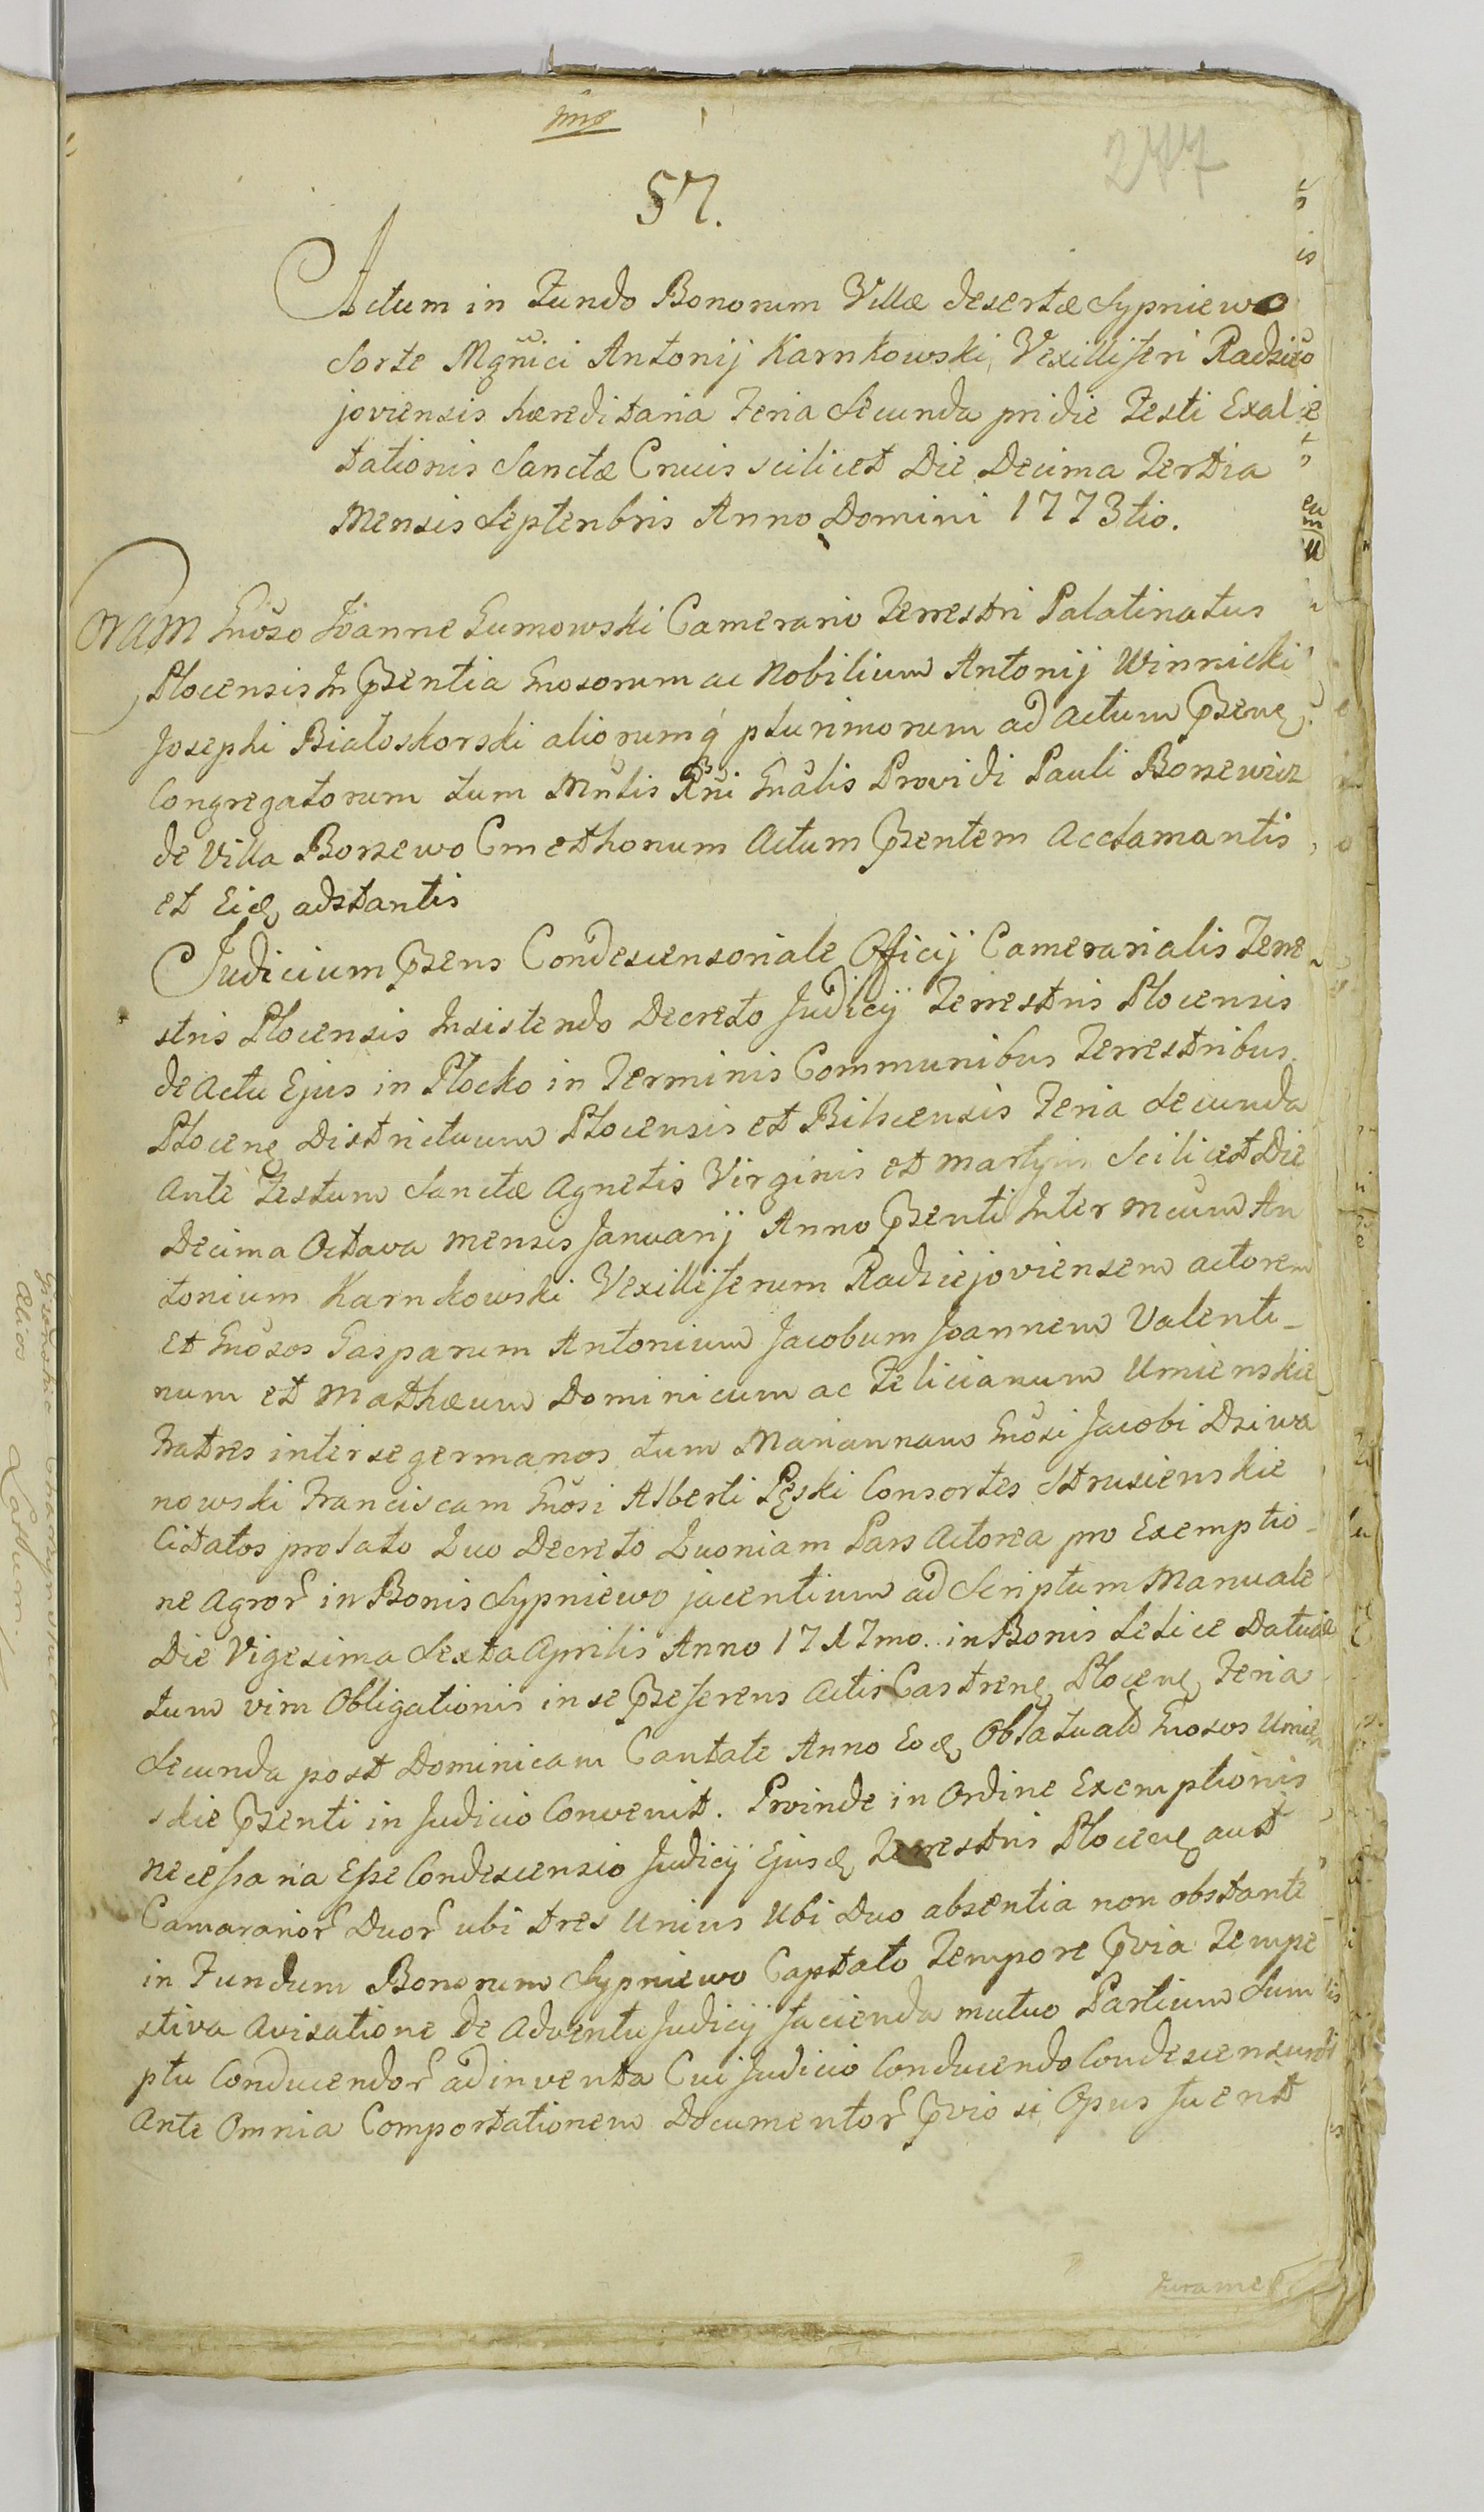 277
57.
Actum in Fundo Bonorum Villæ desertæ Sypniewo
Sorte Mgñici Antonij Karnkowski Vexilliferi Radzie
joviensis hæreditaria Feria Secunda pridie Festi Exal
tationis Sanctæ Crucis scilicet Die Decima Tertia
Mensis Septenbris Anno Domini 1773tio.
Coram Gnõso Joanne Gumowski Camerario Terrestri Palatinatus
Plocensis In Pstentia Gnosorum ac Nobilium Antonij Winnicki
Josephi Białoskorski aliorumq́ plurimorum ad actum
Congregatorum tum Mñlis Rñi Gnãlis Providi Pauli Borzewicz
de Villa Borzewo Cmethonum Actum Psentem Acclamantis
et Eid adstantis
Judicium Psens Condescensoriale Officij Camerarialis Terre
stris Plocensis Insistendo Decreto Judicij Terrestris Plocensis
de Actu Ejus in Plocko in Terminis Communibus Terrestribus
Plocen Districtuum Plocensis et Bilscensis Feria Secunda
Ante Festum Sanctæ Agnetis Virginis et Martyris Scilicet Die
Decima Octava mensis Januarij Anno Psenti Inter Mcum An
tonium Karnkowski Vexilliferum Radziejoviensem actorem
Et Gnõsos Gasparum Antonium Jacobum Joannem Valenti-
num et Mathæum Dominicum ac Felicianum Umienskie
Fratres inter se germanos tum Mariannam Gnõsi Jacobi Dziwa
nowski Franciscam Gnõsi Alberti Pęski Consortes Strusienskie
Citatos prolato Quo Decreto Quoniam Pars Actorea pro Exemptio-
ne Agror in Bonis Sypniewo jacentium ad Scriptum Manuale
Die Vigesima Sexta Aprilis Anno 1717mo. in Bonis
tum vim Obligationis in se Pseferens Actis Castren Plocen Feria
Secunda post Dominicam Cantate Anno Eod Oblatuatũ Gnosos Umień
skie Psenti in Judicio Convenit. Proinde in Ordine Exemptionis
necessaria Esse Condescensio Judicij Ejusd Terrestris Plocen aut
Camararior Duor ubi tres Unius Ubi Duo absentia non obstante
in Fundum Bonorum Sypniewo Captato Tempore Pvia Tempe
stiva Avisatione de Adventu Judicij facienda mutuo Partium Sum
ptu Conducendor adinventa Cui Judicio Conducendo Condescensuro
Ante Omnia Comportationem Documentor Pvio si Opus fuerit
Jurame